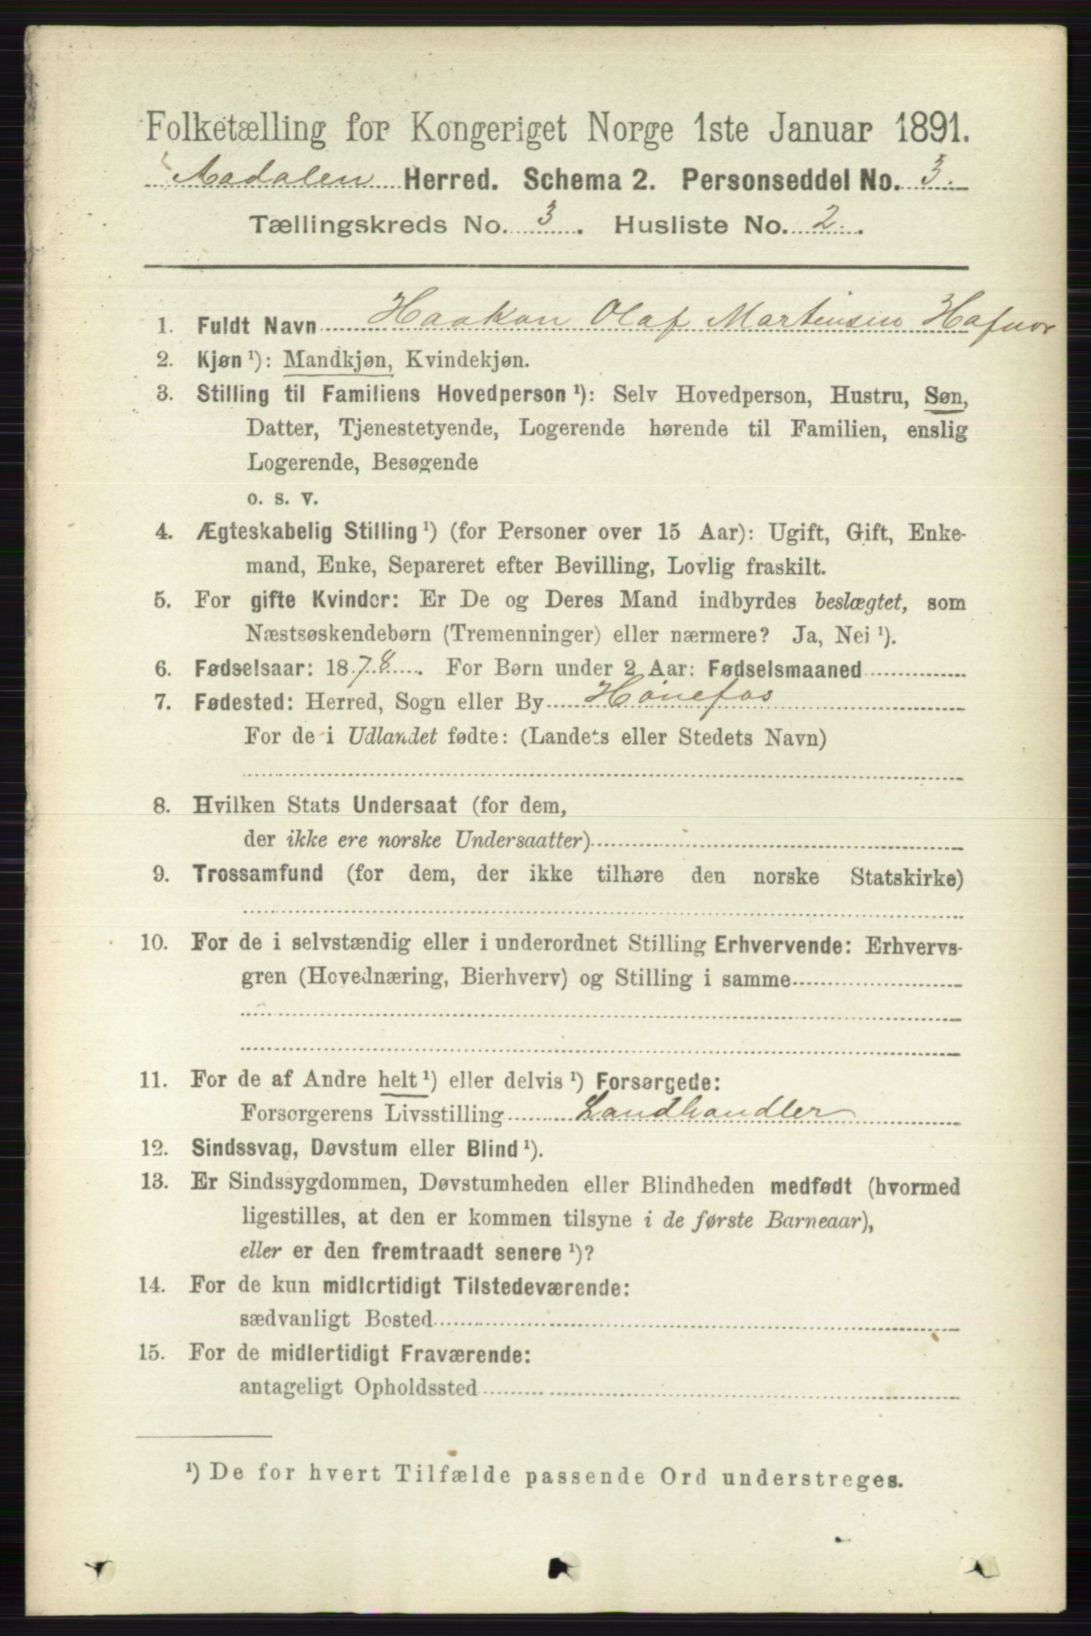 Folketælling for Kongeriget Norge 1ste Januar 1891.
Aadalen Herred. Schema 2. Personseddel No. 3.
Tællingskreds No. 3. Husliste No. 2.
1. Fuldt Navn Haakon Olaf Martinsen
2. Kjøn ¹): Mandkjøn, Kvindekjøn.
3. Stilling til Familiens Hovedperson ¹): Selv Hovedperson, Hustru, Søn,
Datter, Tjenestetyende, Logerende hørende til Familien, enslig
Logerende, Besøgende
o. s. v.
4. Ægteskabelig Stilling ¹) (for Personer over 15 Aar): Ugift, Gift, Enke-
mand, Enke, Separeret efter Bevilling, Lovlig fraskilt.
5. For gifte Kvinder: Er De og Deres Mand indbyrdes beslægtet, som
Næstsøskendebørn (Tremenninger) eller nærmere? Ja, Nei ¹).
6. Fødselsaar: 1878. For Børn under 2 Aar: Fødselsmaaned
7. Fødested: Herred, Sogn eller By Hønefos
For de i Udlandet fødte: (Landets eller Stedets Navn)
8. Hvilken Stats Undersaat (for dem,
der ikke ere norske Undersaatter)
9. Trossamfund (for dem, der ikke tilhøre den norske Statskirke)
10. For de i selvstændig eller i underordnet Stilling Erhvervende: Erhvervs-
gren (Hovednæring, Bierhverv) og Stilling i samme
11. For de af Andre helt ¹) eller delvis ¹) Forsørgede:
Forsørgerens Livsstilling Landhandler
12. Sindssvag, Døvstum eller Blind ¹).
13. Er Sindssygdommen, Døvstumheden eller Blindheden medfødt (hvormed
ligestilles, at den er kommen tilsyne i de første Barneaar),
eller er den fremtraadt senere ¹)?
14. For de kun midlertidigt Tilstedeværende:
sædvanligt Bosted
15. For de midlertidigt Fraværende:
antageligt Opholdssted
¹) De for hvert Tilfælde passende Ord understreges.